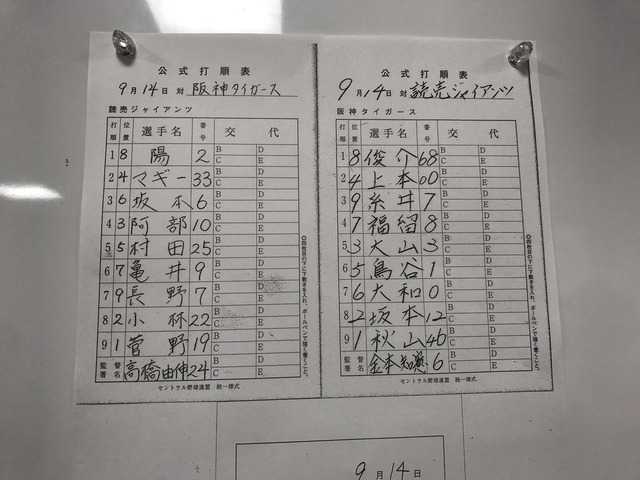 公式打順表
9月14日 対 阪神タイガース
読売ジャイアンツ
打順 位置 選手名 番号 交代
1 8 陽 2 B D C E
2 4 マギー 33 B D C E
3 6 坂本 6 B D C E
4 3 阿部 10 B D C E
5 5 村田 25 B D C E
6 7 亀井 9 B D C E
7 9 長野 7 B D C E
8 2 小林 22 B D C E
9 1 菅野 19 B D C E
監督署名 高橋由伸 24
セントラル野球連盟 統一様式
◎四枚目の下に下敷きを入れ、ボールペンで強く書くこと。
公式打順表
9月14日 対 読売ジャイアンツ
阪神タイガース
打順 位置 選手名 番号 交代
1 8 俊介 68 B D C E
2 4 上本 00 B D C E
3 9 糸井 7 B D C E
4 7 福留 8 B D C E
5 3 大山 3 B D C E
6 5 鳥谷 1 B D C E
7 6 大和 0 B D C E
8 2 坂本 12 B D C E
9 1 秋山 46 B D C E
監督署名 金本知憲 6
セントラル野球連盟 統一様式
◎四枚目の下に下敷きを入れ、ボールペンで強く書くこと。
9月14日